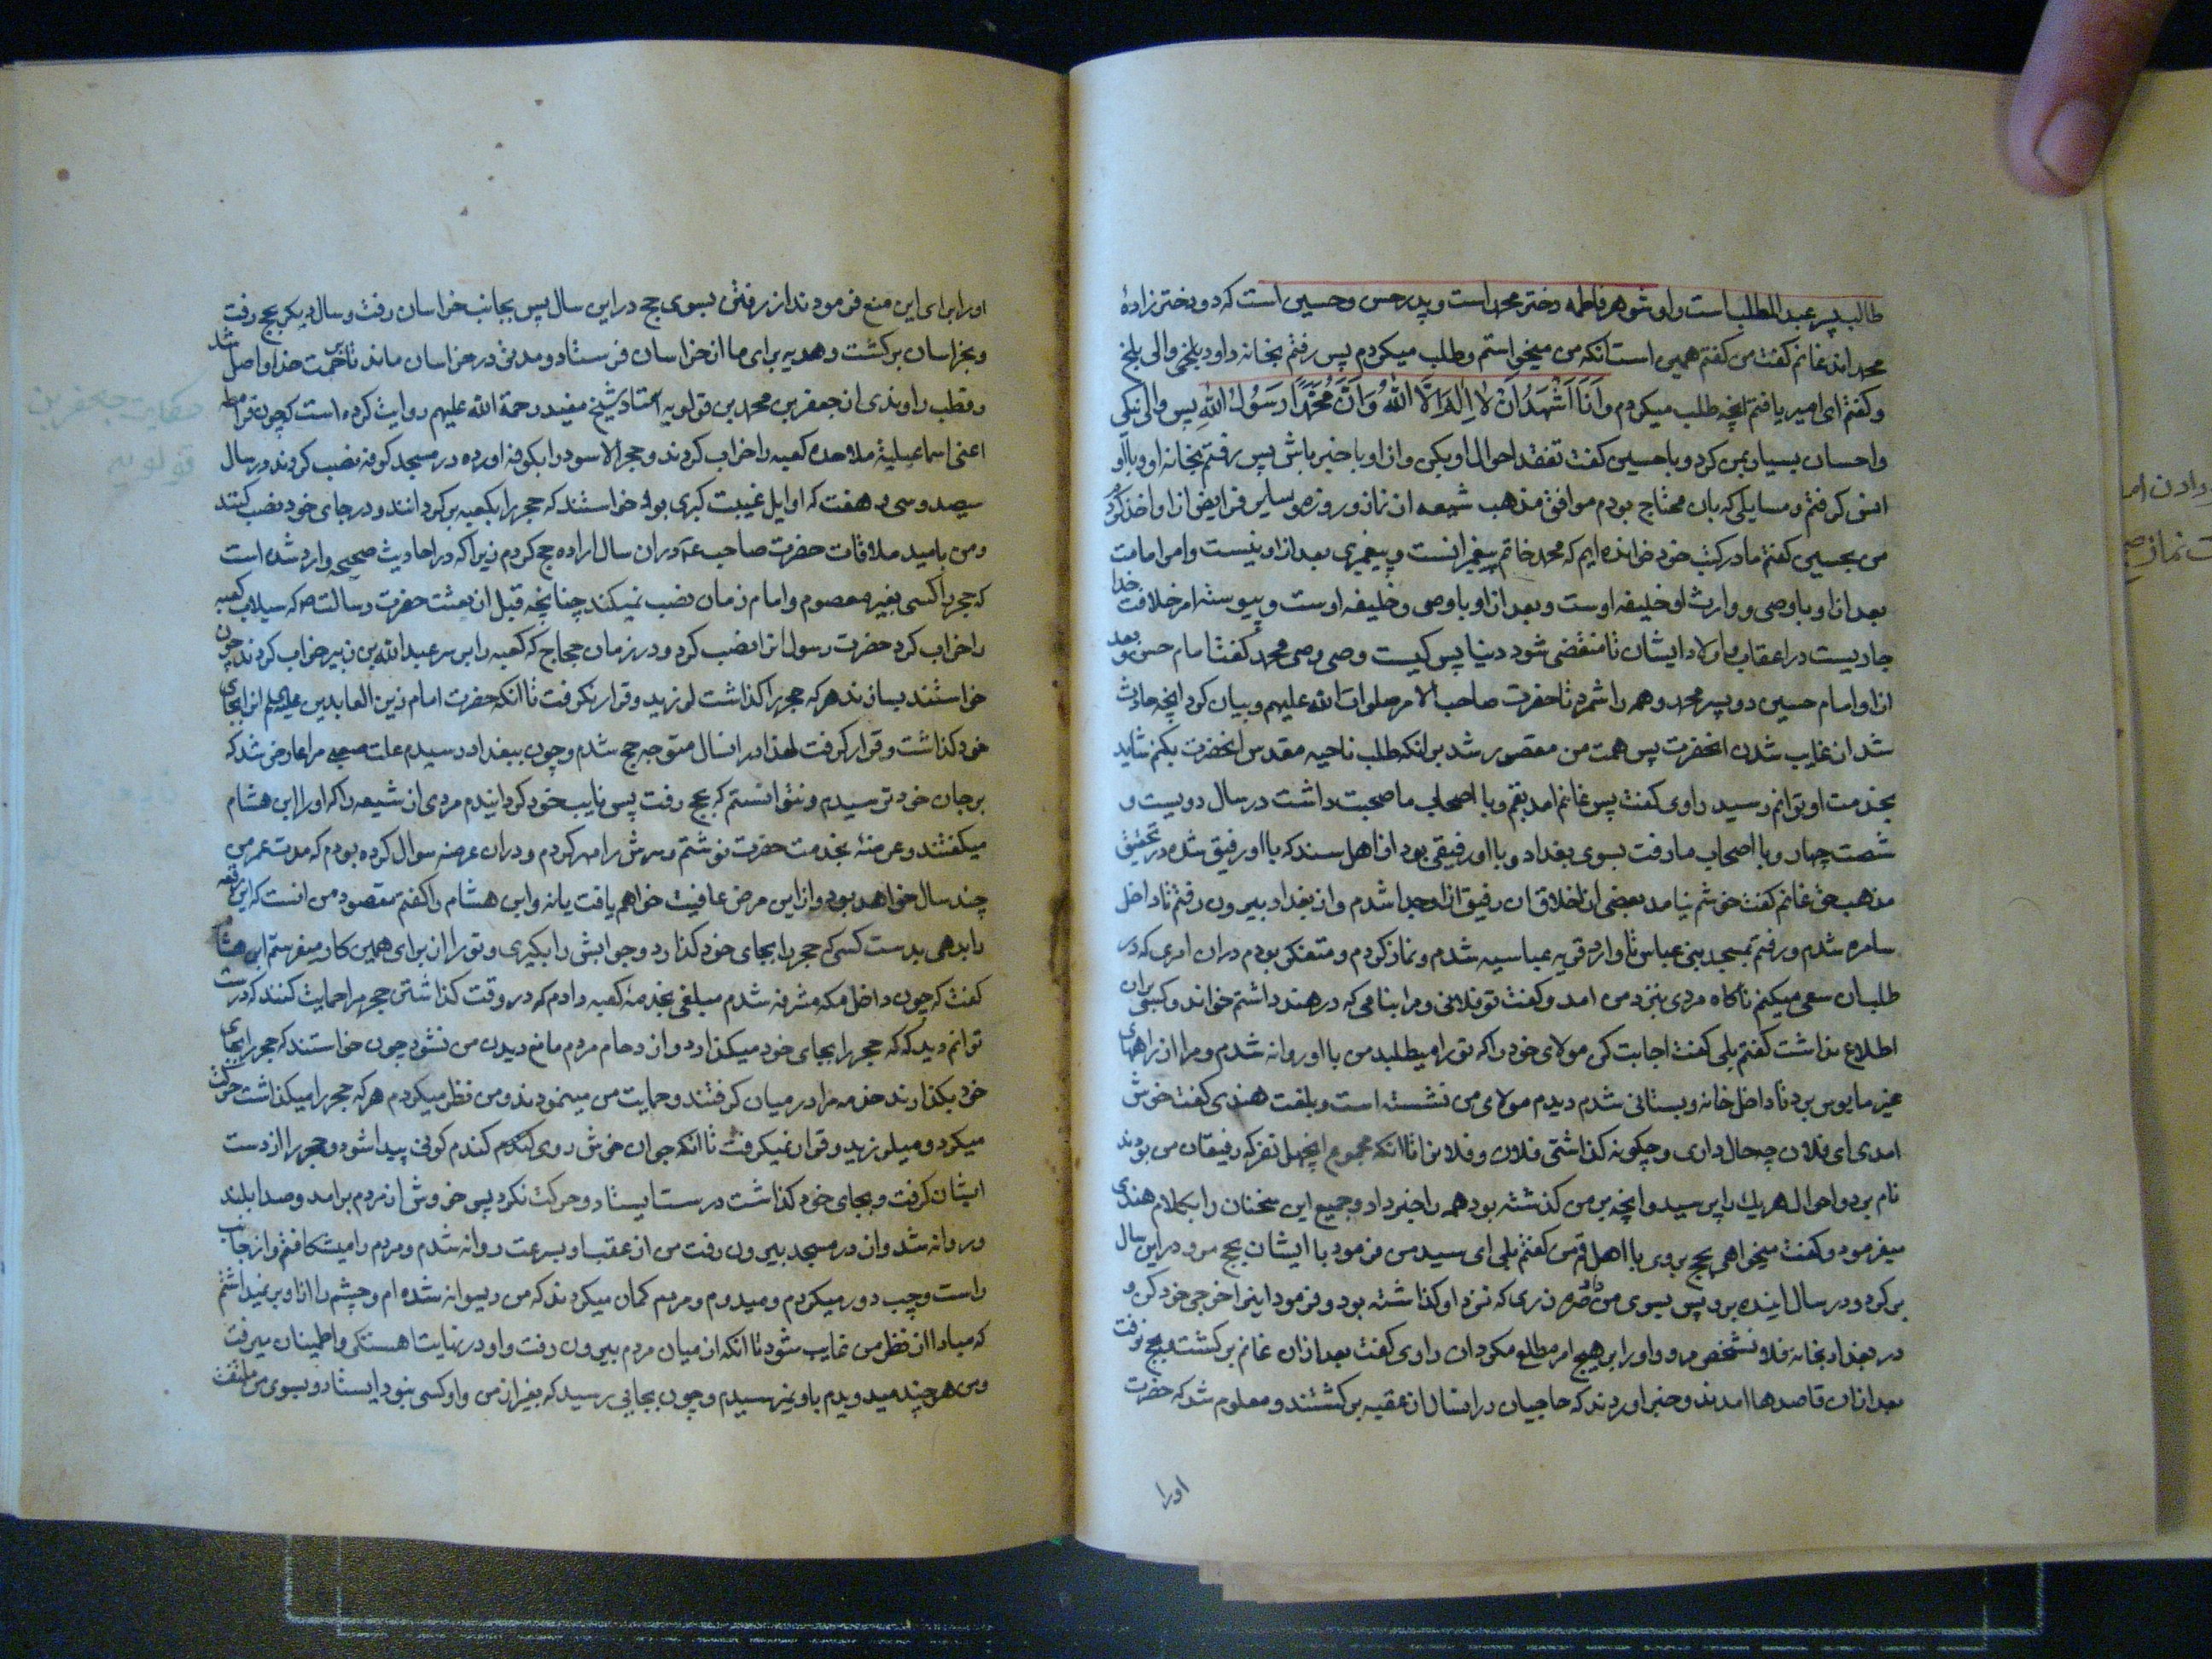 طالب پسر عبد المطلب است و او شوهر فاطمه دختر محمد است و پدر حسن و حسین است که دو دختر زادهٔ
محمد اند غانم کفت من کفتم همین است انکه من میخواستم و طلب میکردم پس رفتم بخانه داود بلخی والی بلخ
و کفتم ای امیر یافتم انچه طلب میکردم وَاَنَا اَشْهَدُ اَنْ لا اِلٰهَ اِلَّا اللهُ وَاَنَّ مُحَمَّدًا رَسُولُ اللهِ پس والی نیکی
و احسان بسیار بمن کرد و با حسین کفت تفقد احوال او بکن و از او با خبر باش پس رفتم بخانه او و با او
انس کرفتم و مسایلی که بان محتاج بودم موافق مذهب شیعه از نماز و روزه و سایر فرایض از او اخذ کردم
من بحسین کفتم ما در کتب خود خوانده ایم که محمد خاتم پیغمبرانست و پیغمبری بعد از او نیست و امر امامت
بعد از او با وصی و وارث او خلیفه اوست و بعد از او با وصی و خلیفه اوست و پیوسته امر خلافت خدا
جاریست در اعقاب و اولاد ایشان تا منقضی شود دنیا پس کیست وصی وصی محمد کفت امام حسن و بعد
از او امام حسین دو پسر محمد و همه را شمرد تا حضرت صاحب الامر صلوات الله علیهم و بیان کرد انچه حادث
شد از غایب شدن انحضرت پس همت من مقصور شد بر انکه طلب ناحیه مقدس انحضرت بکنم شاید
بخدمت او توانم رسید راوی کفت پس غانم امد بقم و با اصحاب ما صحبت داشت در سال دویست و
شصت چهار و با اصحاب ما رفت بسوی بغداد و با او رفیقی بود از اهل سند که با او رفیق شده در تحقیق
مذهب حق غانم کفت خوشم نیامد بعضی از اخلاق ان رفیق از او جدا شدم و از بغداد بیرون رفتم تا داخل
سامره شدم و رفتم بمسجد بنی عباس تا وارد قریه عباسیه شدم و نماز کردم و متفکر بودم دران امری که در
طلب ان سعی میکنم ناکاه مردی بنزد من امد و کفت تو فلانی و مرا بنامی که در هند داشتم خواند و کسی بران
اطلاع نداشت کفتم بلی کفت اجابت کن مولای خود را که تو را میطلبد من با او روانه شدم و مرا از راههای
غیر مانوس برد تا داخل خانه و بستانی شدم دیدم مولای من نشسته است و بلغت هندی کفت خوش
امدی ای فلان چه حال داری و چکونه کذاشتی فلان و فلان را تا انکه مجموع انچهل نفر که رفیقان من بودند
نام برد و احوال هریک را پرسید و انچه بر من کذشته بود همه را خبر داد و جمیع این سخنان را بکلام هندی
میفرمود و کفت میخواهی بحج بروی با اهل قم من کفتم بلی ای سید من فرمود با ایشان بحج مرو در این سال
برکرد و در سال اینده برو پس بسوی من صره زری که نزد او کذاشته بود و فرمود اینرا خرجی خود کن و
در بغداد بخانه فلان شخص مرو و او را بر هیچ امر مطلع مکردان راوی کفت بعد ازان غانم برکشت و بحج نرفت
بعد ازان قاصدها امدند و خبر اوردند که حاجیان در انسال از عقبه برکشتند و معلوم شد که حضرت
اورا
او را برای این منع فرمودند از رفتن بسوی حج در این سال پس بجانب خراسان رفت و سال دیکر بحج رفت
و بخراسان برکشت و هدیه برای ما از خراسان فرستاد و مدتی در خراسان ماند تا برحمت خدا واصل شد
و قطب راوندی از جعفر بن محمد بن قولویه استاد شیخ مفید رحمة الله علیهم روایت کرده است که چون قرامطه
اعنی اسماعیلیهٔ ملاحده کعبه را خراب کردند و حجر الاسود را بکوفه اورده در مسجد کوفه نصب کردند و در سال
سیصد و سی و هفت که اوایل غیبت کبری بود خواستند که حجر را بکعبه برکردانند و در جای خود نصب کنند
و من بامید ملاقات حضرت صاحب ع دران سال اراده حج کردم زیرا که در احادیث صحیحه وارد شده است
که حجر را کسی بغیر معصوم و امام زمان نصب نمیکند چنانچه قبل از بعثت حضرت رسالت ص که سیلاب کعبه
را خراب کرد حضرت رسول انرا نصب کرد و در زمان حجاج که کعبه را بر سر عبد الله بن زبیر خراب کردند چون
خواستند بسازند هرکه حجر را کذاشت لرزید و قرار نکرفت تا انکه حضرت امام زین العابدین علیه السلام انرا بجای
خود کذاشت و قرار کرفت لهذا در انسال متوجه حج شدم و چون ببغداد رسیدم علت صعبی مرا عارض شد که
بر جان خود ترسیدم و نتوانستم که بحج رفت پس نایب خود کردانیدم مردی از شیعه را که او را ابن هشام
میکفتند و عریضهٔ بخدمت حضرت نوشتم و سرش را مهر کردم و دران عریضه سوال کرده بودم که مدت عمر من
چند سال خواهد بود و از این مرض عافیت خواهم یافت یا نه و ابن هشام را کفتم مقصود من انست که این رقعه
را بدهی بدست کسی که حجر را بجای خود کذارد و جوابش را بکیری و تو را از برای همین کار میفرستم ابن هشام
کفت که چون داخل مکه مشرفه شدم مبلغی بخدمهٔ کعبه دادم که در وقت کذاشتن حجر مرا حمایت کنند که درست
توانم دید که که حجر را بجای خود میکذارد و ازدحام مردم مانع دیدن من نشود چون خواستند که حجر را بجای
خود بکذارند خدمه مرا در میان کرفتند و حمایت من مینمودند و من نظر میکردم هرکه حجر را میکذاشت حرکت
میکرد و میلرزید و قرار نمیکرفت تا انکه جوان خوش روی کندم کونی پیدا شود و حجر را از دست
ایشان کرفت و بجای خود کذاشت درست ایستاد و حرکت نکرد پس خروش از مردم برامد و صدا بلند
و روانه شد و از در مسجد بیرون رفت من از عقب او بسرعت روانه شدم و مردم را میشکافتم و از جانب
راست و چپ دور میکردم و میدویدم و مردم کمان میکردند که من دیوانه شده ام و چشم را از او بر نمیداشتم
که مبادا از نظر من غایب شود تا انکه از میان مردم بیرون رفت و او در نهایت اهستکی و اطمینان میرفت
و من هر چند میدویدم باو نمیرسیدم و چون بجایی رسید که بغیر از من و او کسی نبود ایستاد و بسوی من ملتفت
حکایت جعفر بن
قولویه